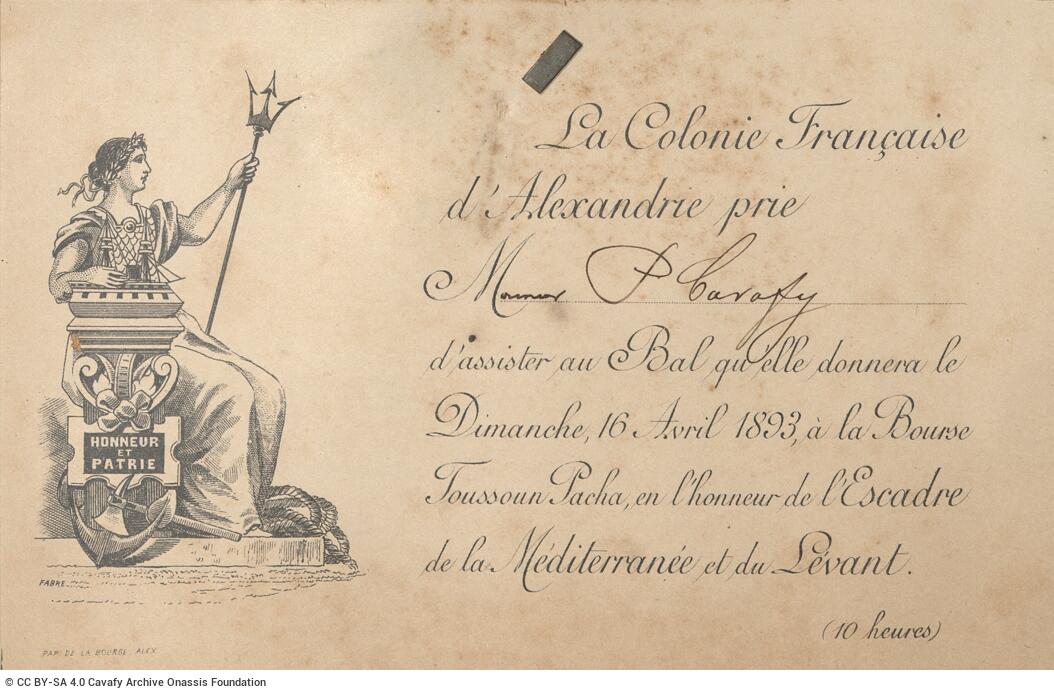 La Colonie Française
d'Alexandrie prie
Monsieur P Cavafy
d'assister au Bal qu'elle donnera le
Dimanche, 16 Avril 1893, à la Bourse
Toussoun Pacha, en l'honneur de l'Escadre
de la Méditerranée et du Lévant.
(10 heures)
HONNEUR
ET
PATRIE
FABRE
PAP. DE LA BOURSE, ALEX.
© CC BY-SA 4.0 Cavafy Archive Onassis Foundation